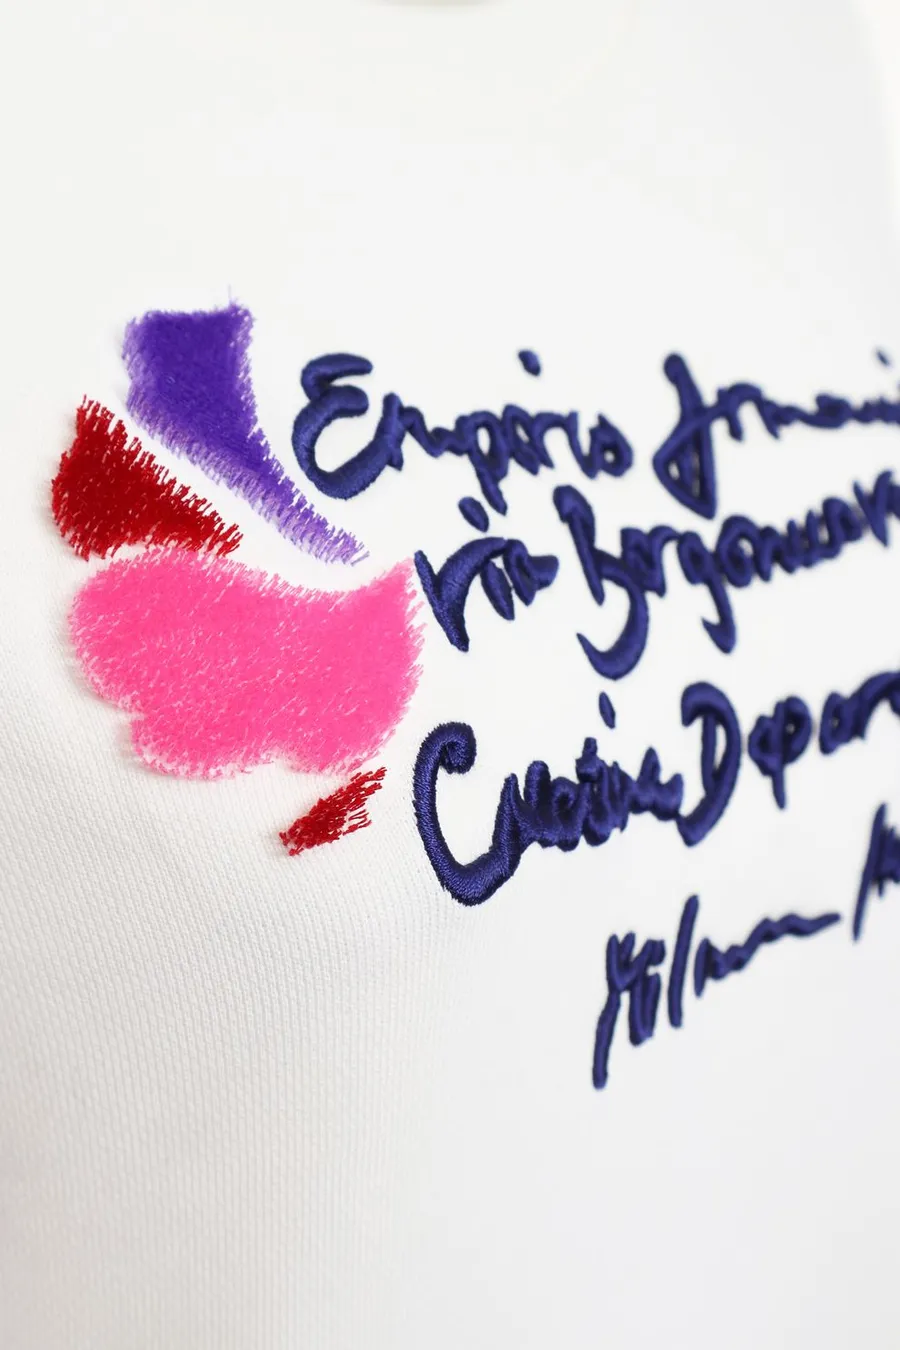 Emporio Armani
via Bergognone
Creative Depar
Milano